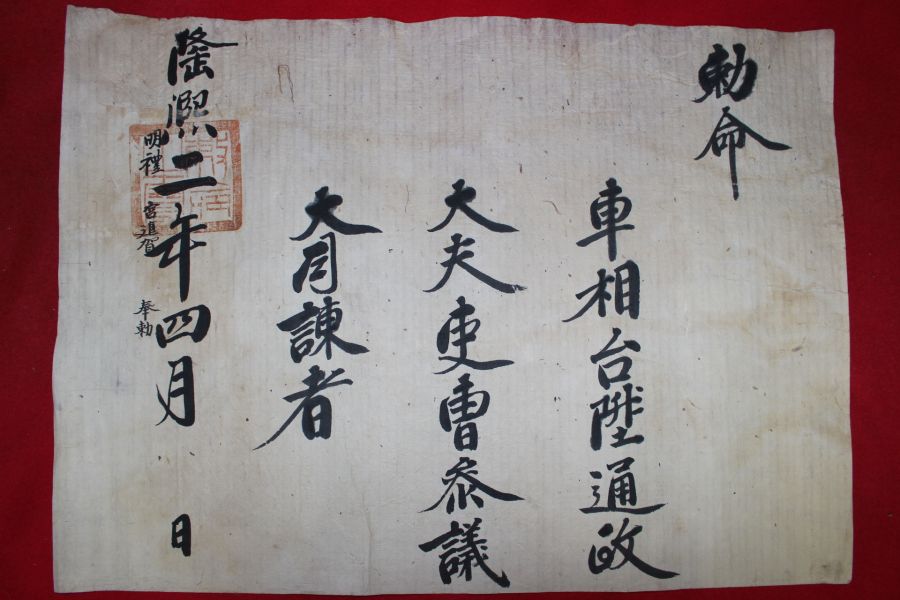 勅命
車相台陞通政
大夫吏曹叅議
大司諫者
隆熙二年四月 日
明禮宮進賀 奉勅